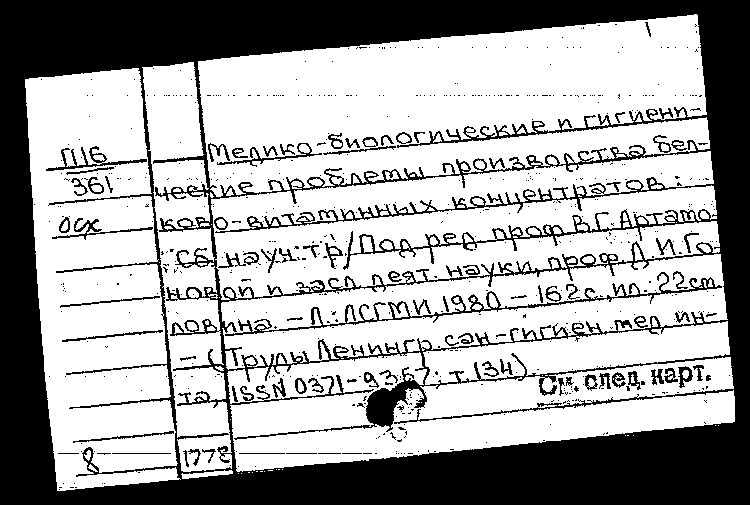 П16
361
осх
Медико-биологические и гигиени-
ческие проблемы производства бел-
ково-витаминных концентратов:
Сб. науч. тр/Под ред проф В.Г. Артамо-
новой и засл деят. науки, проф. Д.И. Го
ловина. - Л.: ЛСГМИ, 1980. - 162с., ил.; 22см.
- (Труды Ленингр. сан-гигиен. мед. ин-
та, ISSN 0371-9367; т. 134).
См. след. карт.
8